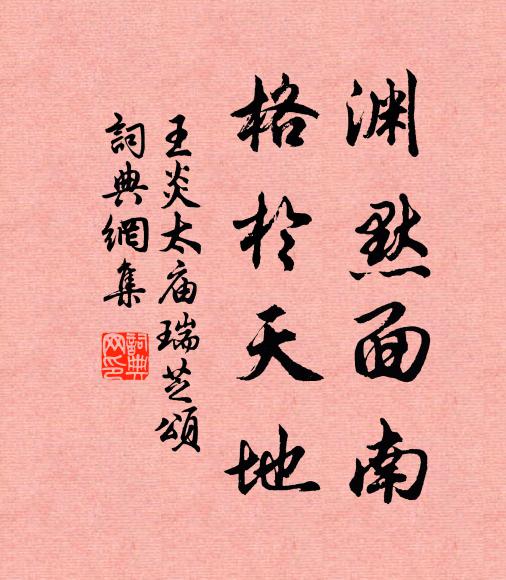 渊默面南
格於天地
王炎太庙瑞芝頌
詞典網集
詞典
网印